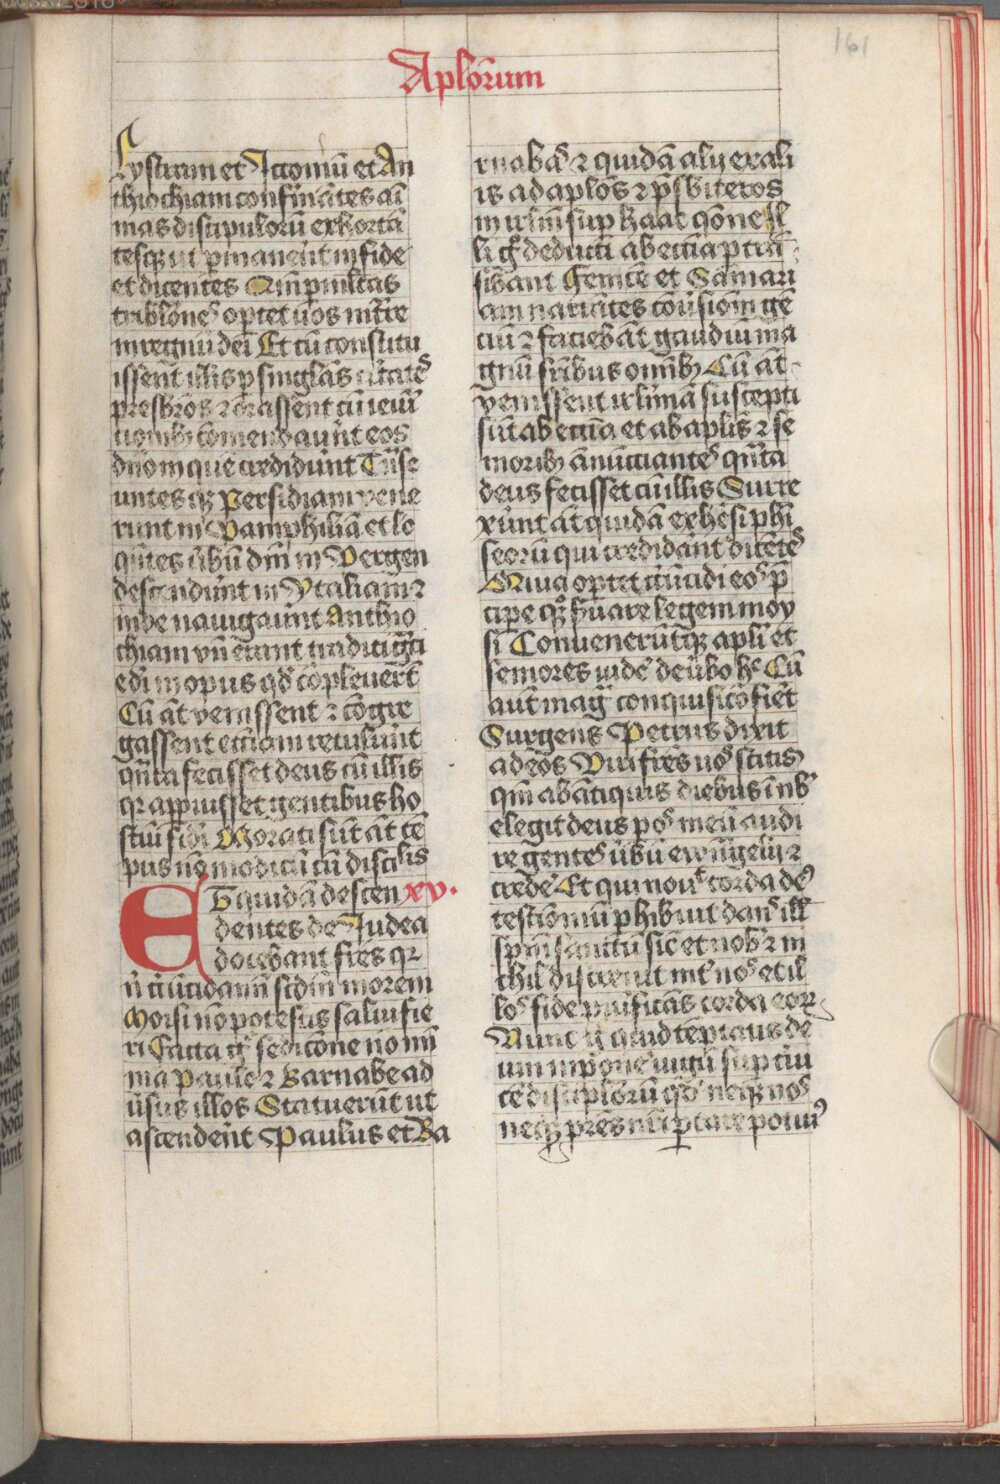 161
Aplōrum
Lystram et Iconiū et An
thiochiam confirmātes aī
mas discipulorū exhortā
tesq ut pmaneāt in fide
et dicentes Qm p multas
tribłones optet uos intˉre
in regnū dei Et cū constitu
issent illis p singłas ciuitates
presbros ⁊ orassent cū ieiuī
tionib cōmendauīt eos
dn̄o in quē credidunt Tn̄se
untes q Persidiam vene
runt in Pamphiliā et lo
qn̄tes ūbū dn̄i in Pergen
descendūnt in Ytaliam ⁊
inde nauigaūnt Anthio
chiam vn̄ erant traditi gr̄a
e dī in opus qd cōpleuerūt
Cū āt venissent ⁊ cōgre
gassent ecc̄iam retulūnt
qn̄ta fecisset deus cū illis
qr apruisset gentibus ho
stiū fidei Morati sūt āt tē
pus nō modicū cū discłis
xv.
ET quidā descen
dentes de Iudea
docebant fr̄es qr
n̄ circūcidamn̄ scdm̄ morem
Moisi nō potestis saluifie
ri Facta g seditōne nō mī
ma paulo ⁊ Barnabe ad
ūsus illos Statuerūt ut
ascenderēt Paulus et Ba
rnabas ⁊ quidā alij ex ali
is ad aplos ⁊ psbiteros
in irlm̄ sup hac qōne Il
li g deducti ab ecc̄ia p trā
sibant Fenicē et Samari
am narrātes cōūsiom gē
ciū ⁊ faciebāt gaudiū ma
gnū frībus omīb Cū āt
venissent irlimā suscepti
sūt ab ecc̄ia et ab aplīs ⁊ se
niorib ānūcciantes qn̄ta
deus fecisset cū illis Surre
xūnt āt quidā ex hēsi phī
seorū qui credidānt dicētes
Quia optet circūcidi eos p̄
cipe q̄ s̄uare legem moy
si Conuenerūtq apłi et
seniores uide de ūbo hc Cū
aūt mag conquisicō fiet̄
Surgens Petrus dixit
ad eos Viri fr̄es uos scitis
qm̄ ab ātiquis diebus ī nb
elegit deus p os meū audi
re gentes ūbū ewn̄gelij ⁊
crede Et qui nouit corda ds
testiōniū phibuit dans ill
spm̄ sanctū sic et nob ⁊ ni
chil discreuit int nos et il
los fide purificās corda eor
Nunc g quid temptatis de
um inpone iugū sup cūi
cē disciplorū qd neq nos
neq pres nr̄i portare potuim